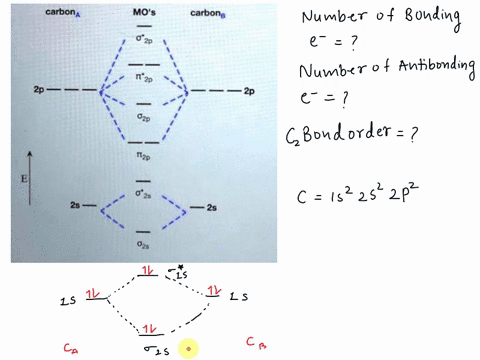 carbonA MO's carbonB
σ*2p
π*2p
2p 2p
σ2p
π2p
E
σ*2s
2s 2s
σ2s
Number of Bonding
e⁻ = ?
Number of Antibonding
e⁻ = ?
C₂ Bond order = ?
C = 1s² 2s² 2p²
σ*1s
1s 1s
σ1s
CA CB